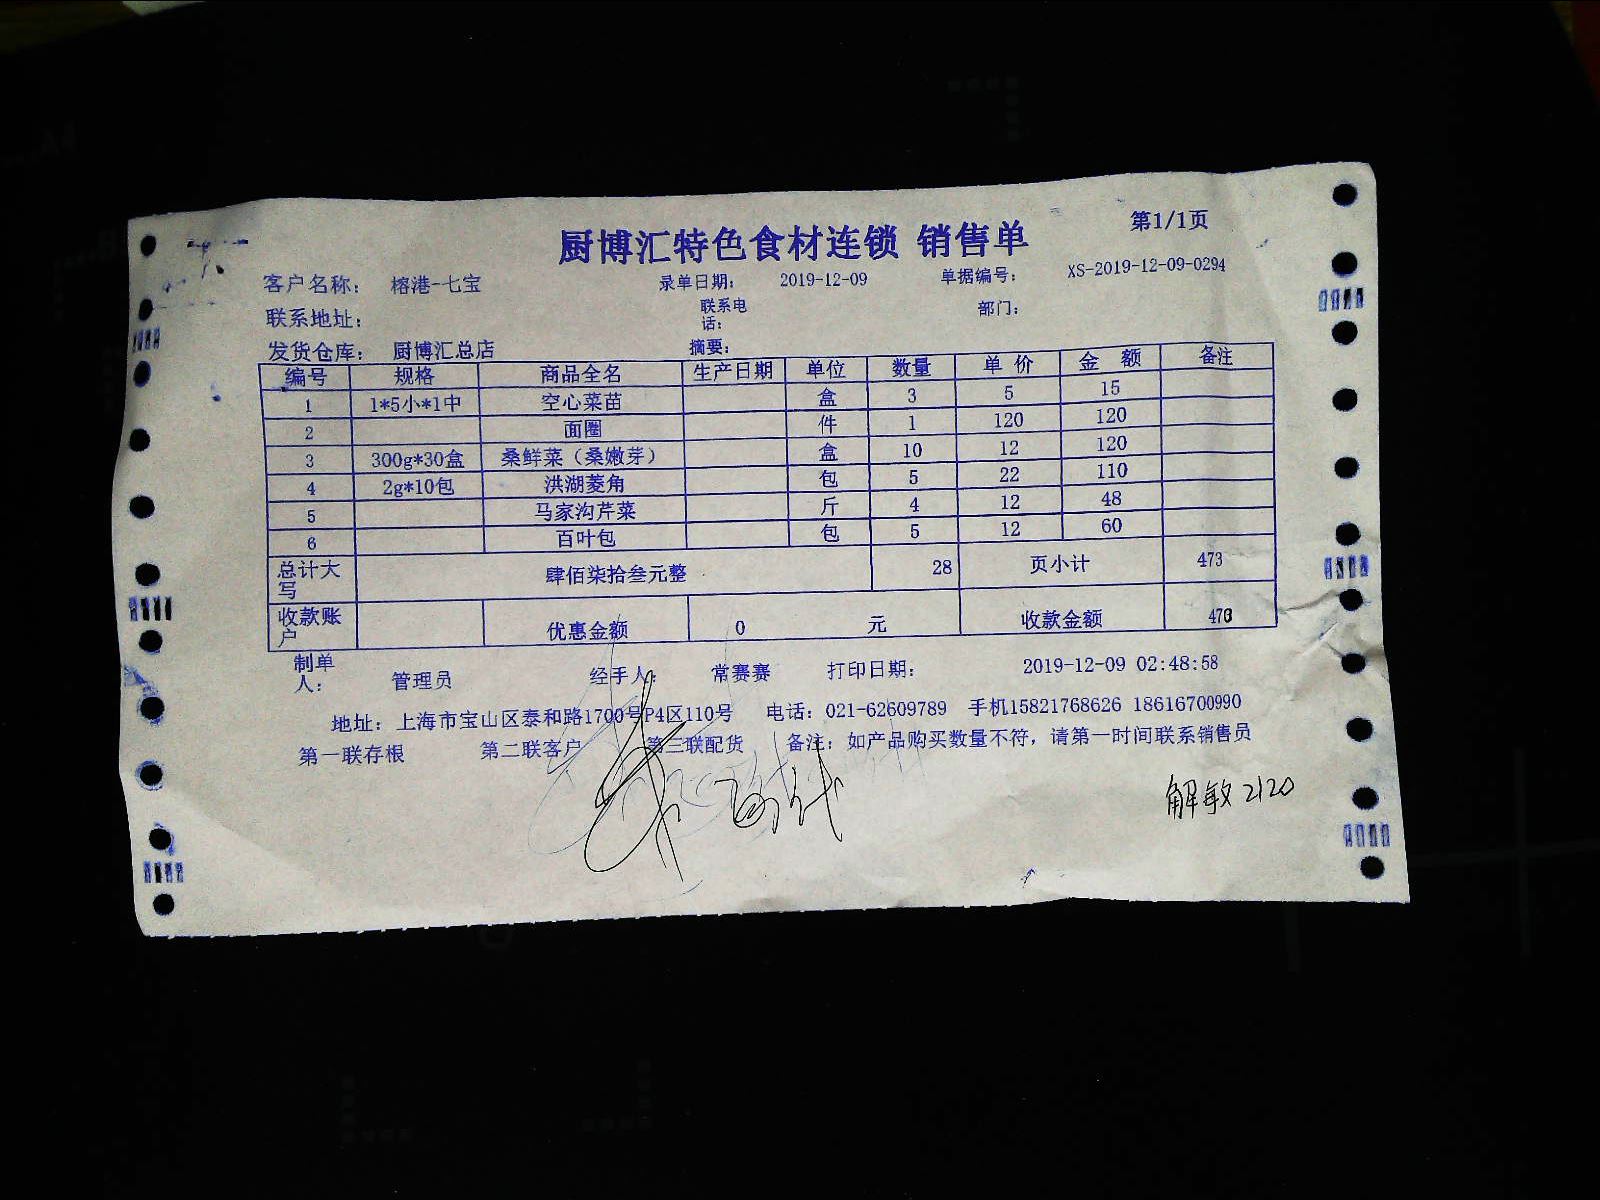 第1/1页
厨博汇特色食材连锁 销售单
客户名称: 榕港-七宝 录单日期: 2019-12-09 单据编号: XS-2019-12-09-0294
联系地址: 联系电话: 部门:
发货仓库: 厨博汇总店 摘要:
编号 规格 商品全名 生产日期 单位 数量 单价 金额 备注
1 1*5小*1中 空心菜苗 盒 3 5 15
2 面圈 件 1 120 120
3 300g*30盒 桑鲜菜（桑嫩芽） 盒 10 12 120
4 2g*10包 洪湖菱角 包 5 22 110
5 马家沟芹菜 斤 4 12 48
6 百叶包 包 5 12 60
总计大写 肆佰柒拾叁元整 28 页小计 473
收款账户 优惠金额 0 元 收款金额 473
制单人: 管理员 经手人: 常赛赛 打印日期: 2019-12-09 02:48:58
地址: 上海市宝山区泰和路1700号P4区110号 电话: 021-62609789 手机15821768626 18616700990
第一联存根 第二联客户 第三联配货 备注: 如产品购买数量不符，请第一时间联系销售员
解敏 2120